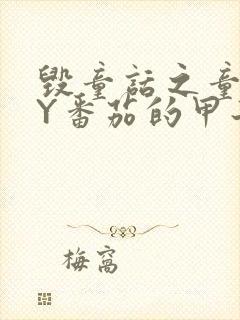 毁童话之童
Y番茄的甲
梅窝